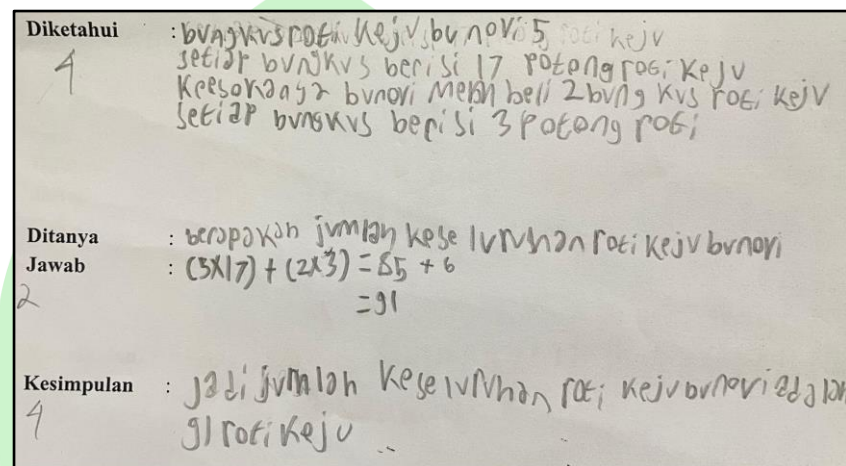 Diketahui : bungkus roti keju bu novi 5 roti keju
4 setiap bungkus berisi 17 potong roti keju
Keesokanya bu novi membeli 2 bungkus roti keju
setiap bungkus berisi 3 potong roti
Ditanya : berapakah jumlah keseluruhan roti keju bu novi
Jawab : (5x17) + (2x3) = 85 + 6
2 = 91
Kesimpulan : Jadi jumlah keseluruhan roti keju bu novi adalah
4 91 roti keju